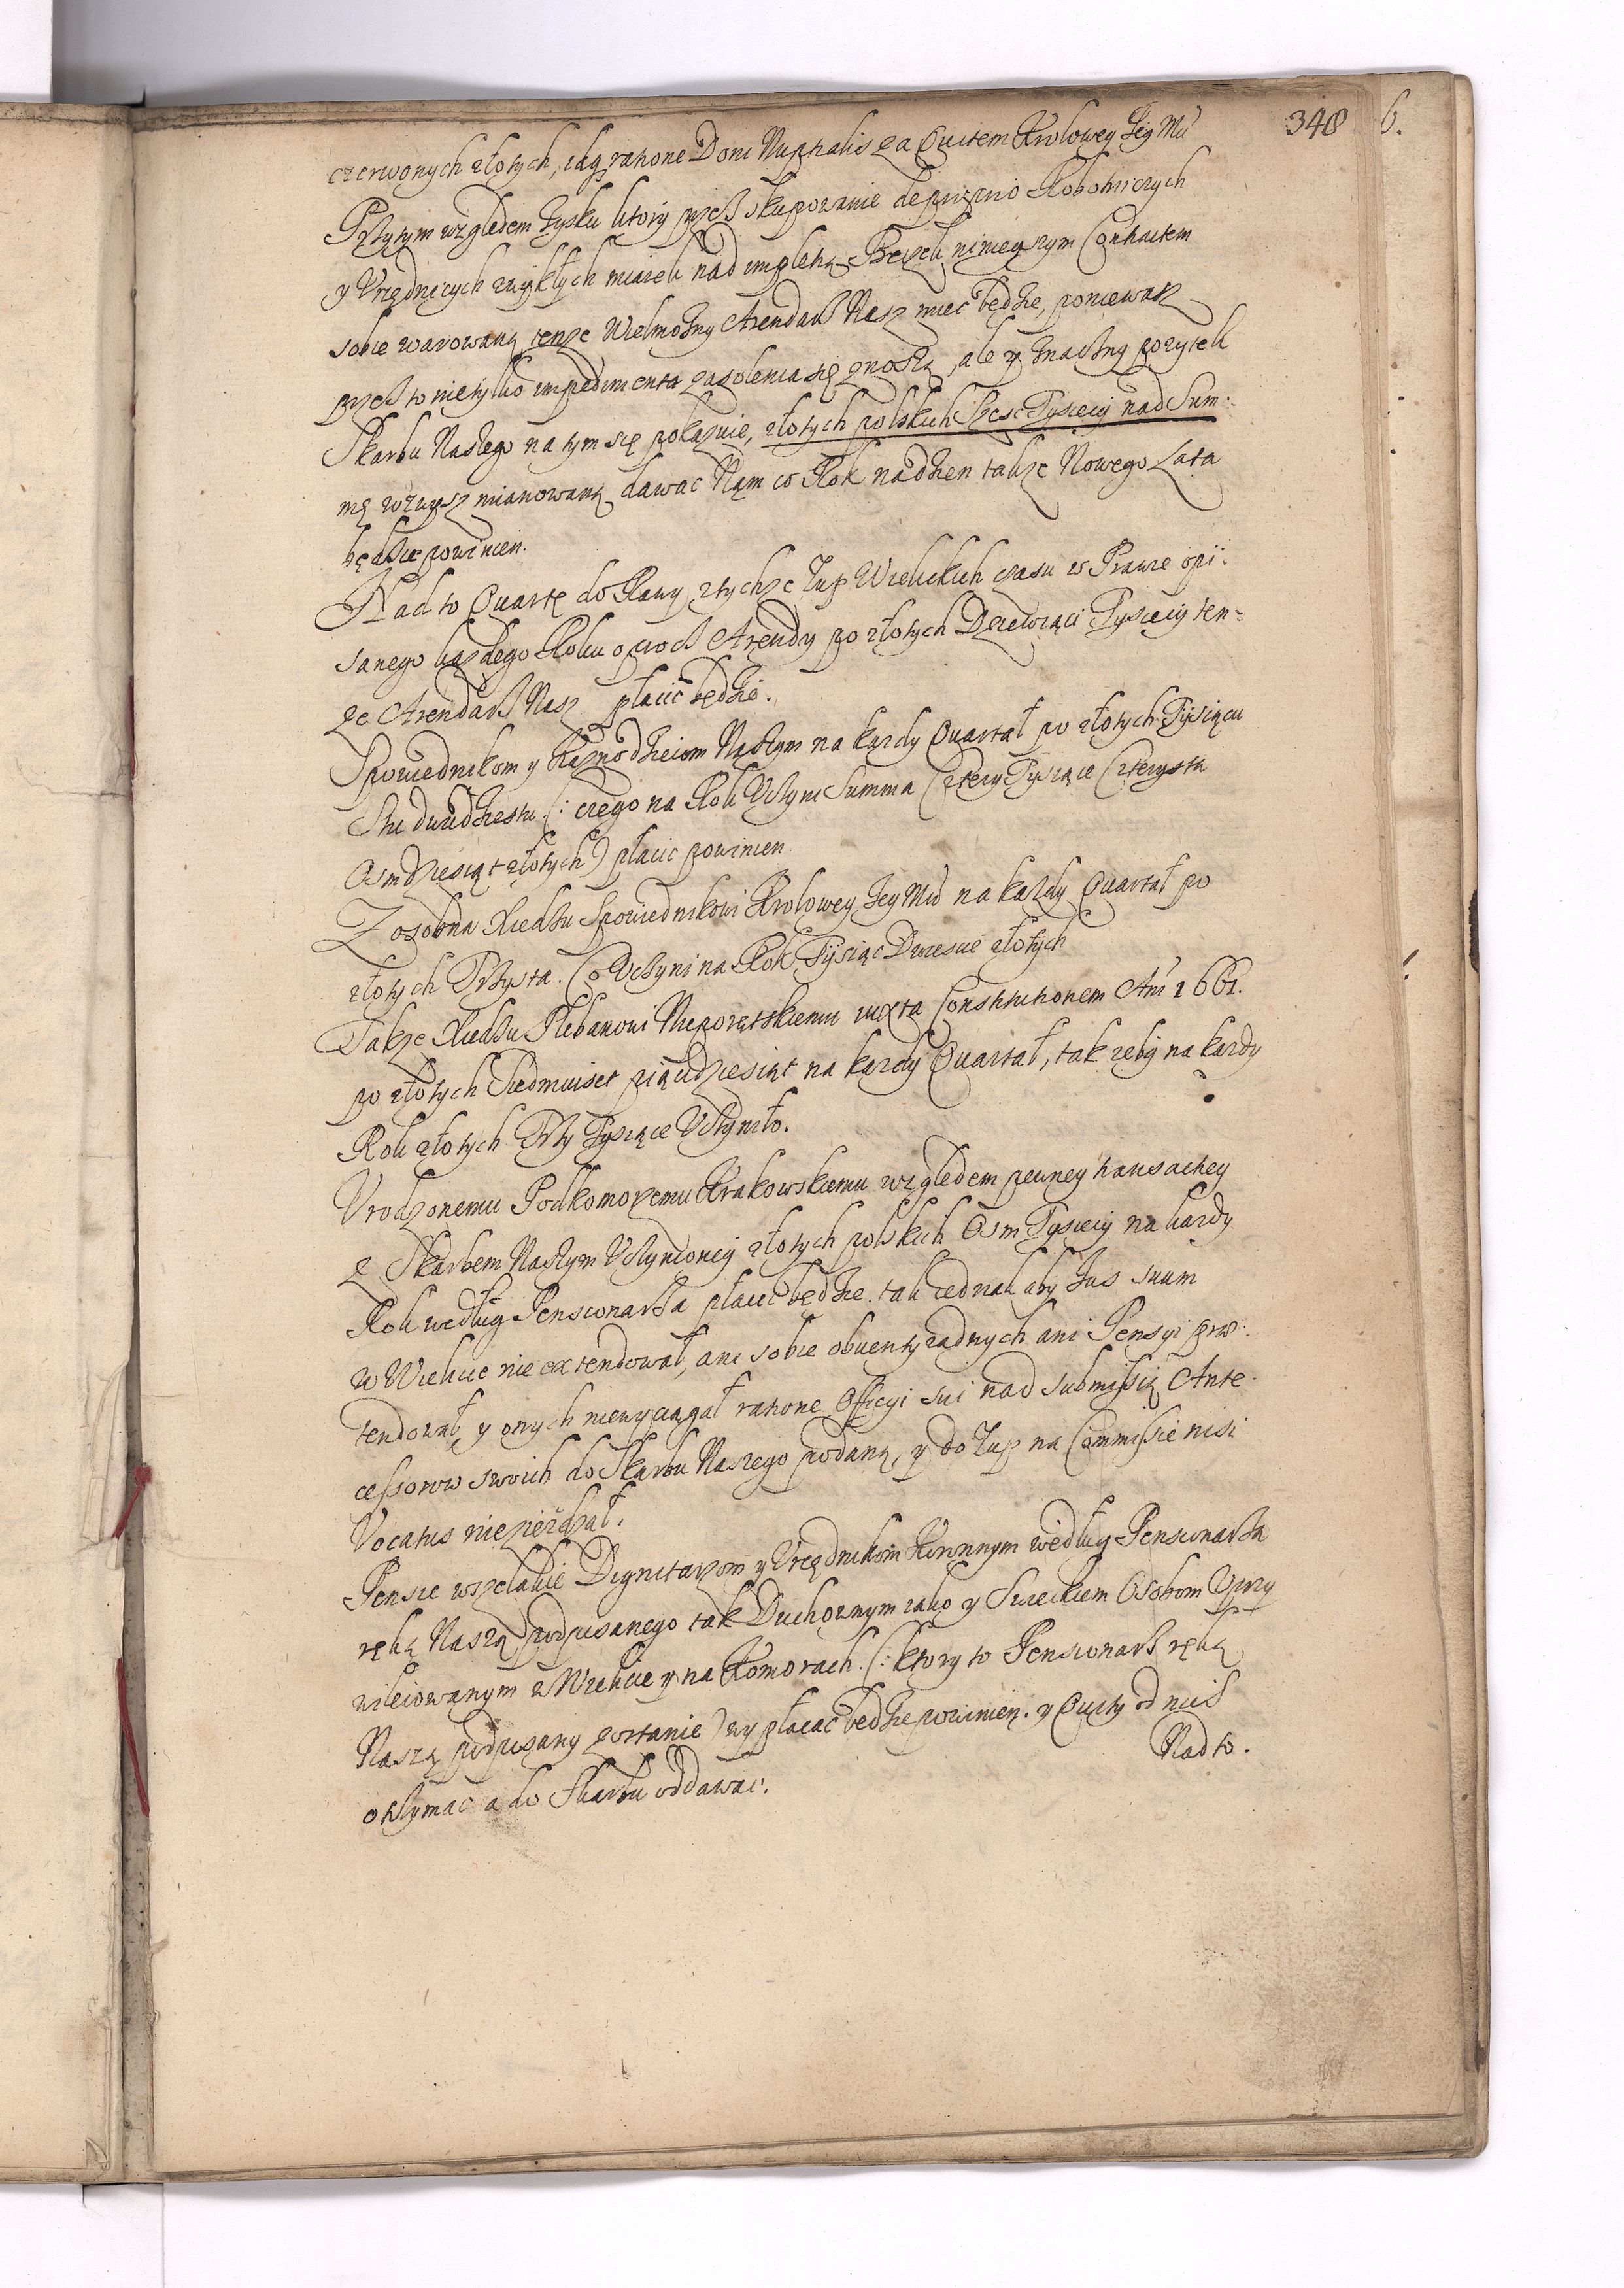 348 6.
czerwonych złotych, idq̢ ratione Doni Nuptialis za Quitem Krolowey Jey Mci
Przytym względem zysku ktory przesz skupowanie depriprio Robotniczych
y Vrzędniczych zwykłych miarek nad impletią Beczek ninieyszym Contractem
sobie warowaną, tenze Wielmozny Arendarz Nasz miec będzie, poniewasz
przesz to nietylko impedimenta zasolenia się znoszą, ale y znaczny pozytek
Skarbu Naszego na tym się pokazuie, złotych polskich Szesc Tysięcy nad Sum:
mę wzwysz mianowaną dawac Nąm co Rok nadzien także Nowego Lata
będzie powinien.
Nad to Quartę do Rawy z tychże Zup Wielickich czasu w Prawie opi:
sanego kazdego Roku oprocz Arendy po złotych Dziewiąci Tysięcy ten=
ze Arendarz Nasz płacic będzie.
Spowiednikom y Kaznodzieiom Naszym na kazdy Quartał po złotych Tysiącu
Stu dwudziestu (: czego na Rok Vczyni Summa Cztery Tysiące Czterysta
Osmdziesiąt złotych) płacic powinien.
Zosobna Xiędzu Spowiednikowi Krolowey Jey Mci na kazdy Quartał po
złotych Trzysta. Co Vczyni na Rok Tysiąc Dwiescie złotych
Takze Xiędzu Plebanowi Nieporętskiemu iuxta Constitutionem Ani 1661.
po złotych Siedmiuset piąćdziesiąt na kazdy Quartał, tak zeby na kazdy
Rok złotych Trzy Tysiące Vczyniło.
Vrodzonemu Podkomorzemu Krakowskiemu względem pewney transactiey
z Skarbem Naszym Vczynioney złotych polskich Osm Tysięcy na kazdy
Rok według Pensionarza płacic będzie. tak iednak aby Jus suum
w Wieliczce nie extendował, ani sobie obwenty zadnych ani Pensyi prae:
tendował, y onych niewyciągał ratione Officyi sui nad submissią Ante
cessorow swoich do Skarbu Naszego podaną, y do Zup na Commissie nisi
Vocatus niezieżdzał.
Pensie wszelakie Dignitarzom y Vrzędnikom Koronnym według Pensionarza
ręką Naszą podpisanego tak Duchownym iako y Swieckiem Osobom Vprzy
wileiowanym w Wieliczce y na Komorach. (: ktory to Pensionarz ręką
Naszą podpisany zostanie) wypłacac będzie powinien. y Quity od nich
otrzymac a do Skarbu oddawac.
Nad to.